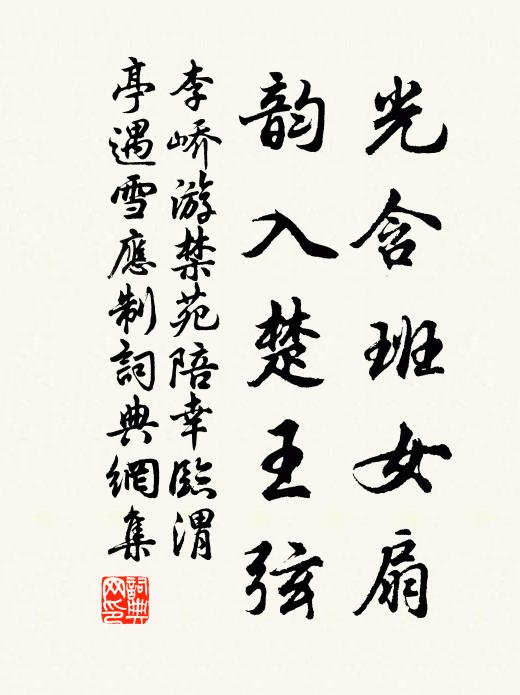 光含班女扇
韵入楚王弦
李峤游禁苑陪幸臨渭
亭遇雪應制詞典網集
詞典
网印